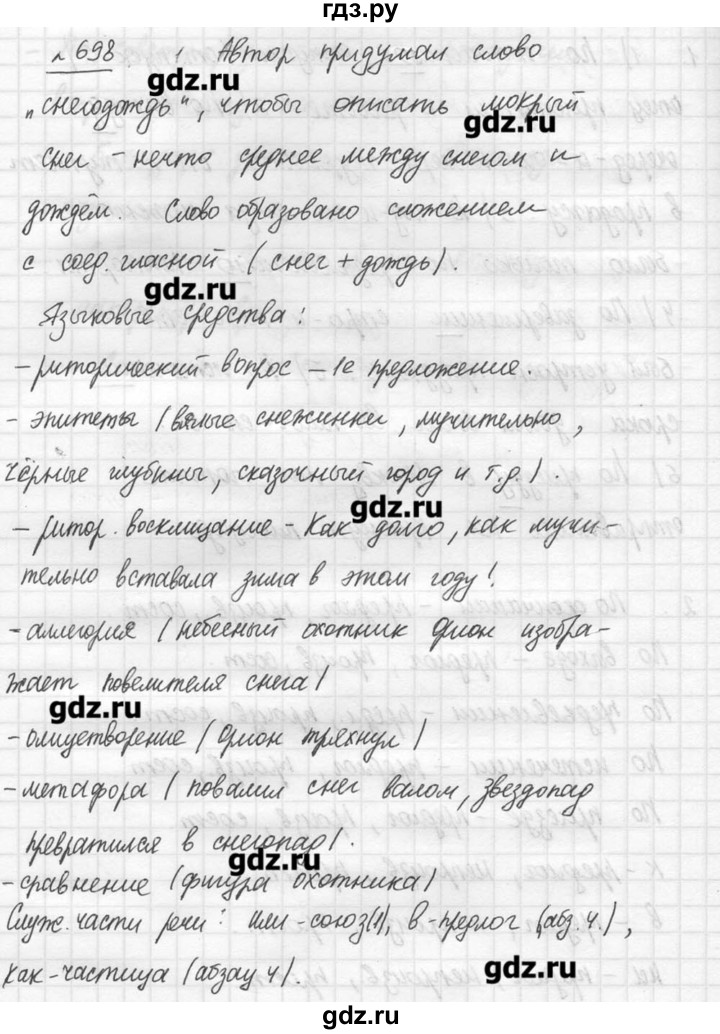 гдз.ру
№ 698 1. Автор придумал слово
gdz.ru
„снегодождь", чтобы описать мокрый
gdz.ru
снег – нечто среднее между снегом и
дождём. Слово образовано сложением
с соед. гласной (снег + дождь).
gdz.ru
Языковые средства:
– риторический вопрос – 1е предложение.
– эпитеты (вялые снежинки, мучительно,
чёрные глубины, сказочный город и т.д.).
gdz.ru
– ритор. восклицание – Как долго, как мучи-
тельно вставала зима в этом году!
– аллегория (небесный охотник Орион изобра-
жает повелителя снега)
gdz.ru
– олицетворение (Орион тряхнул)
– метафора (повалил снег валом, звездопад
превратился в снегопад).
gdz.ru
– сравнение (фигура охотника)
Служ. части речи: или – союз(1), в – предлог (абз. 4.),
как – частица (абзац 4).
gdz.ru